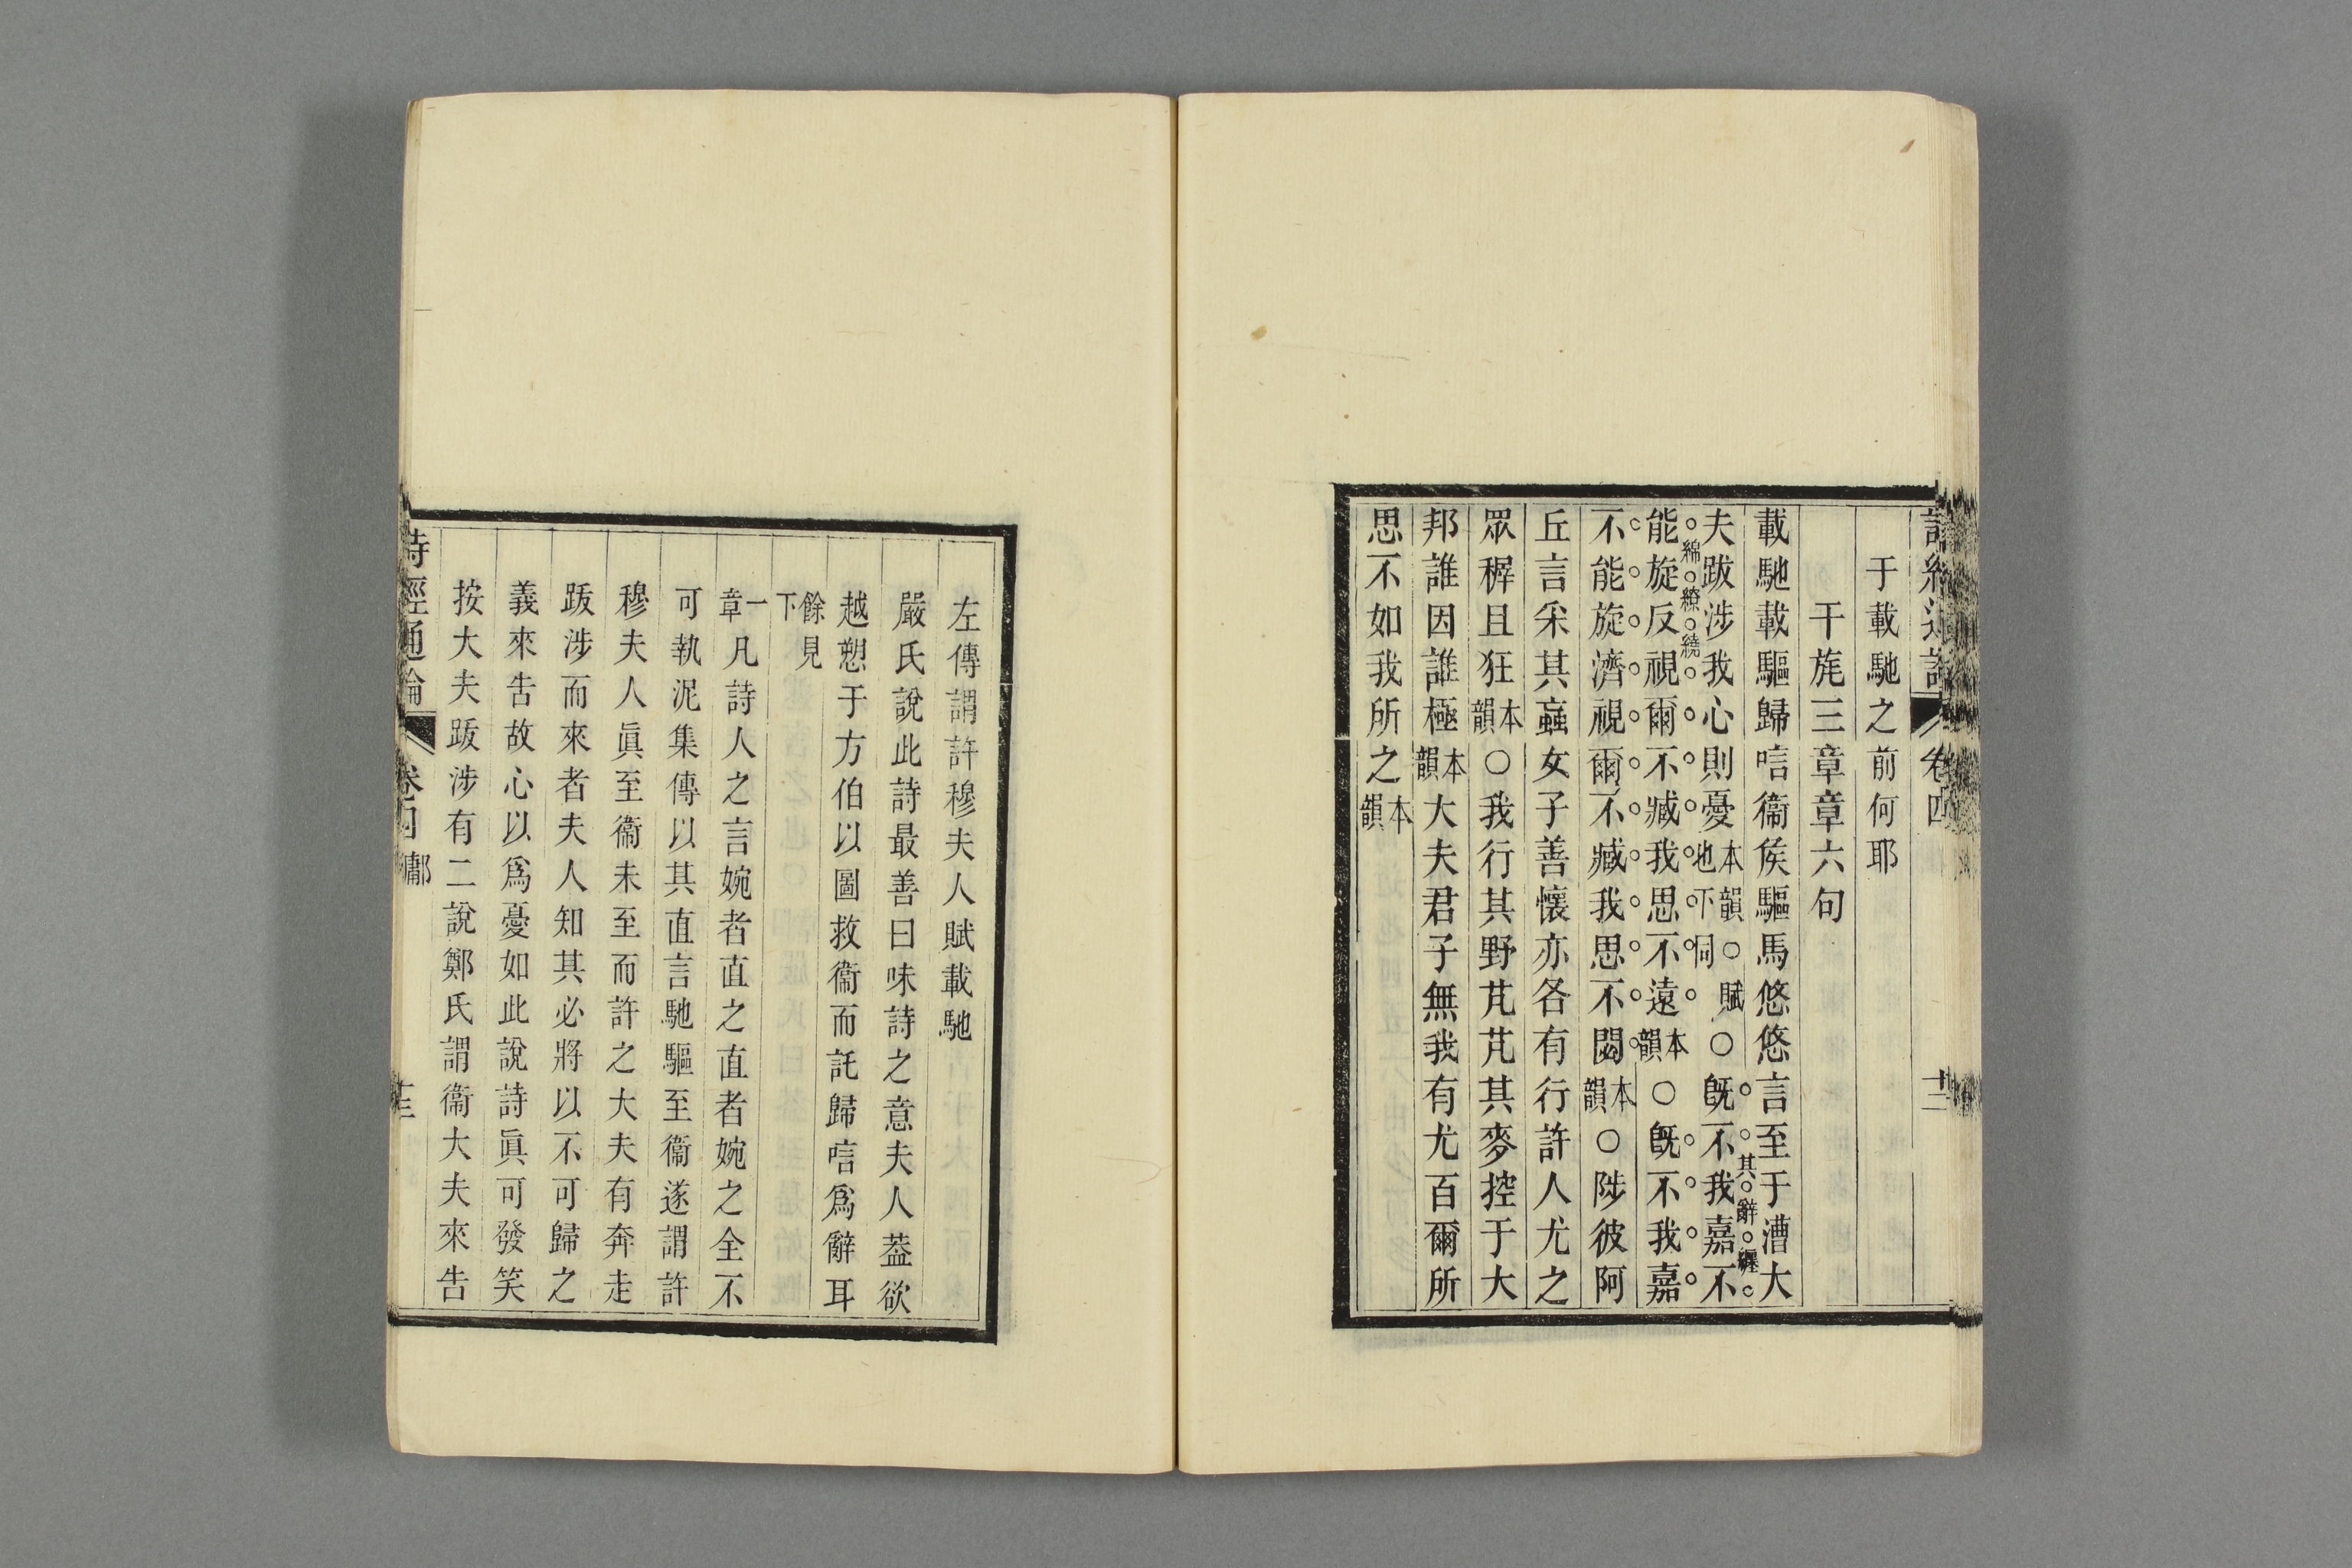 于載馳之前何耶
干旄三章章六句
載馳載驅歸唁衞侯驅馬悠悠言至于漕大
夫跋涉我心則憂本韻地下同○賦○旣不我嘉不
其辭纏
綿繚繞
能旋反視爾不臧我思不遠本韻○旣不我嘉
不能旋濟視爾不臧我思不閟本韻○陟彼阿
丘言采其蝱女子善懷亦各有行許人尤之
眾穉且狂本韻○我行其野芃芃其麥控于大
邦誰因誰極本韻大夫君子無我有尤百爾所
思不如我所之本韻
左傳謂許穆夫人賦載馳
嚴氏說此詩最善曰味詩之意夫人葢欲
越愬于方伯以圖救衞而託歸唁爲辭耳
餘見下
一章凡詩人之言婉者直之直者婉之全不
可執泥集傳以其直言馳驅至衞遂謂許
穆夫人眞至衞未至而許之大夫有奔走
跋涉而來者夫人知其必將以不可歸之
義來告故心以爲憂如此說詩眞可發笑
按大夫跋涉有二說鄭氏謂衞大夫來告
詩經通論 卷四 鄘 十三